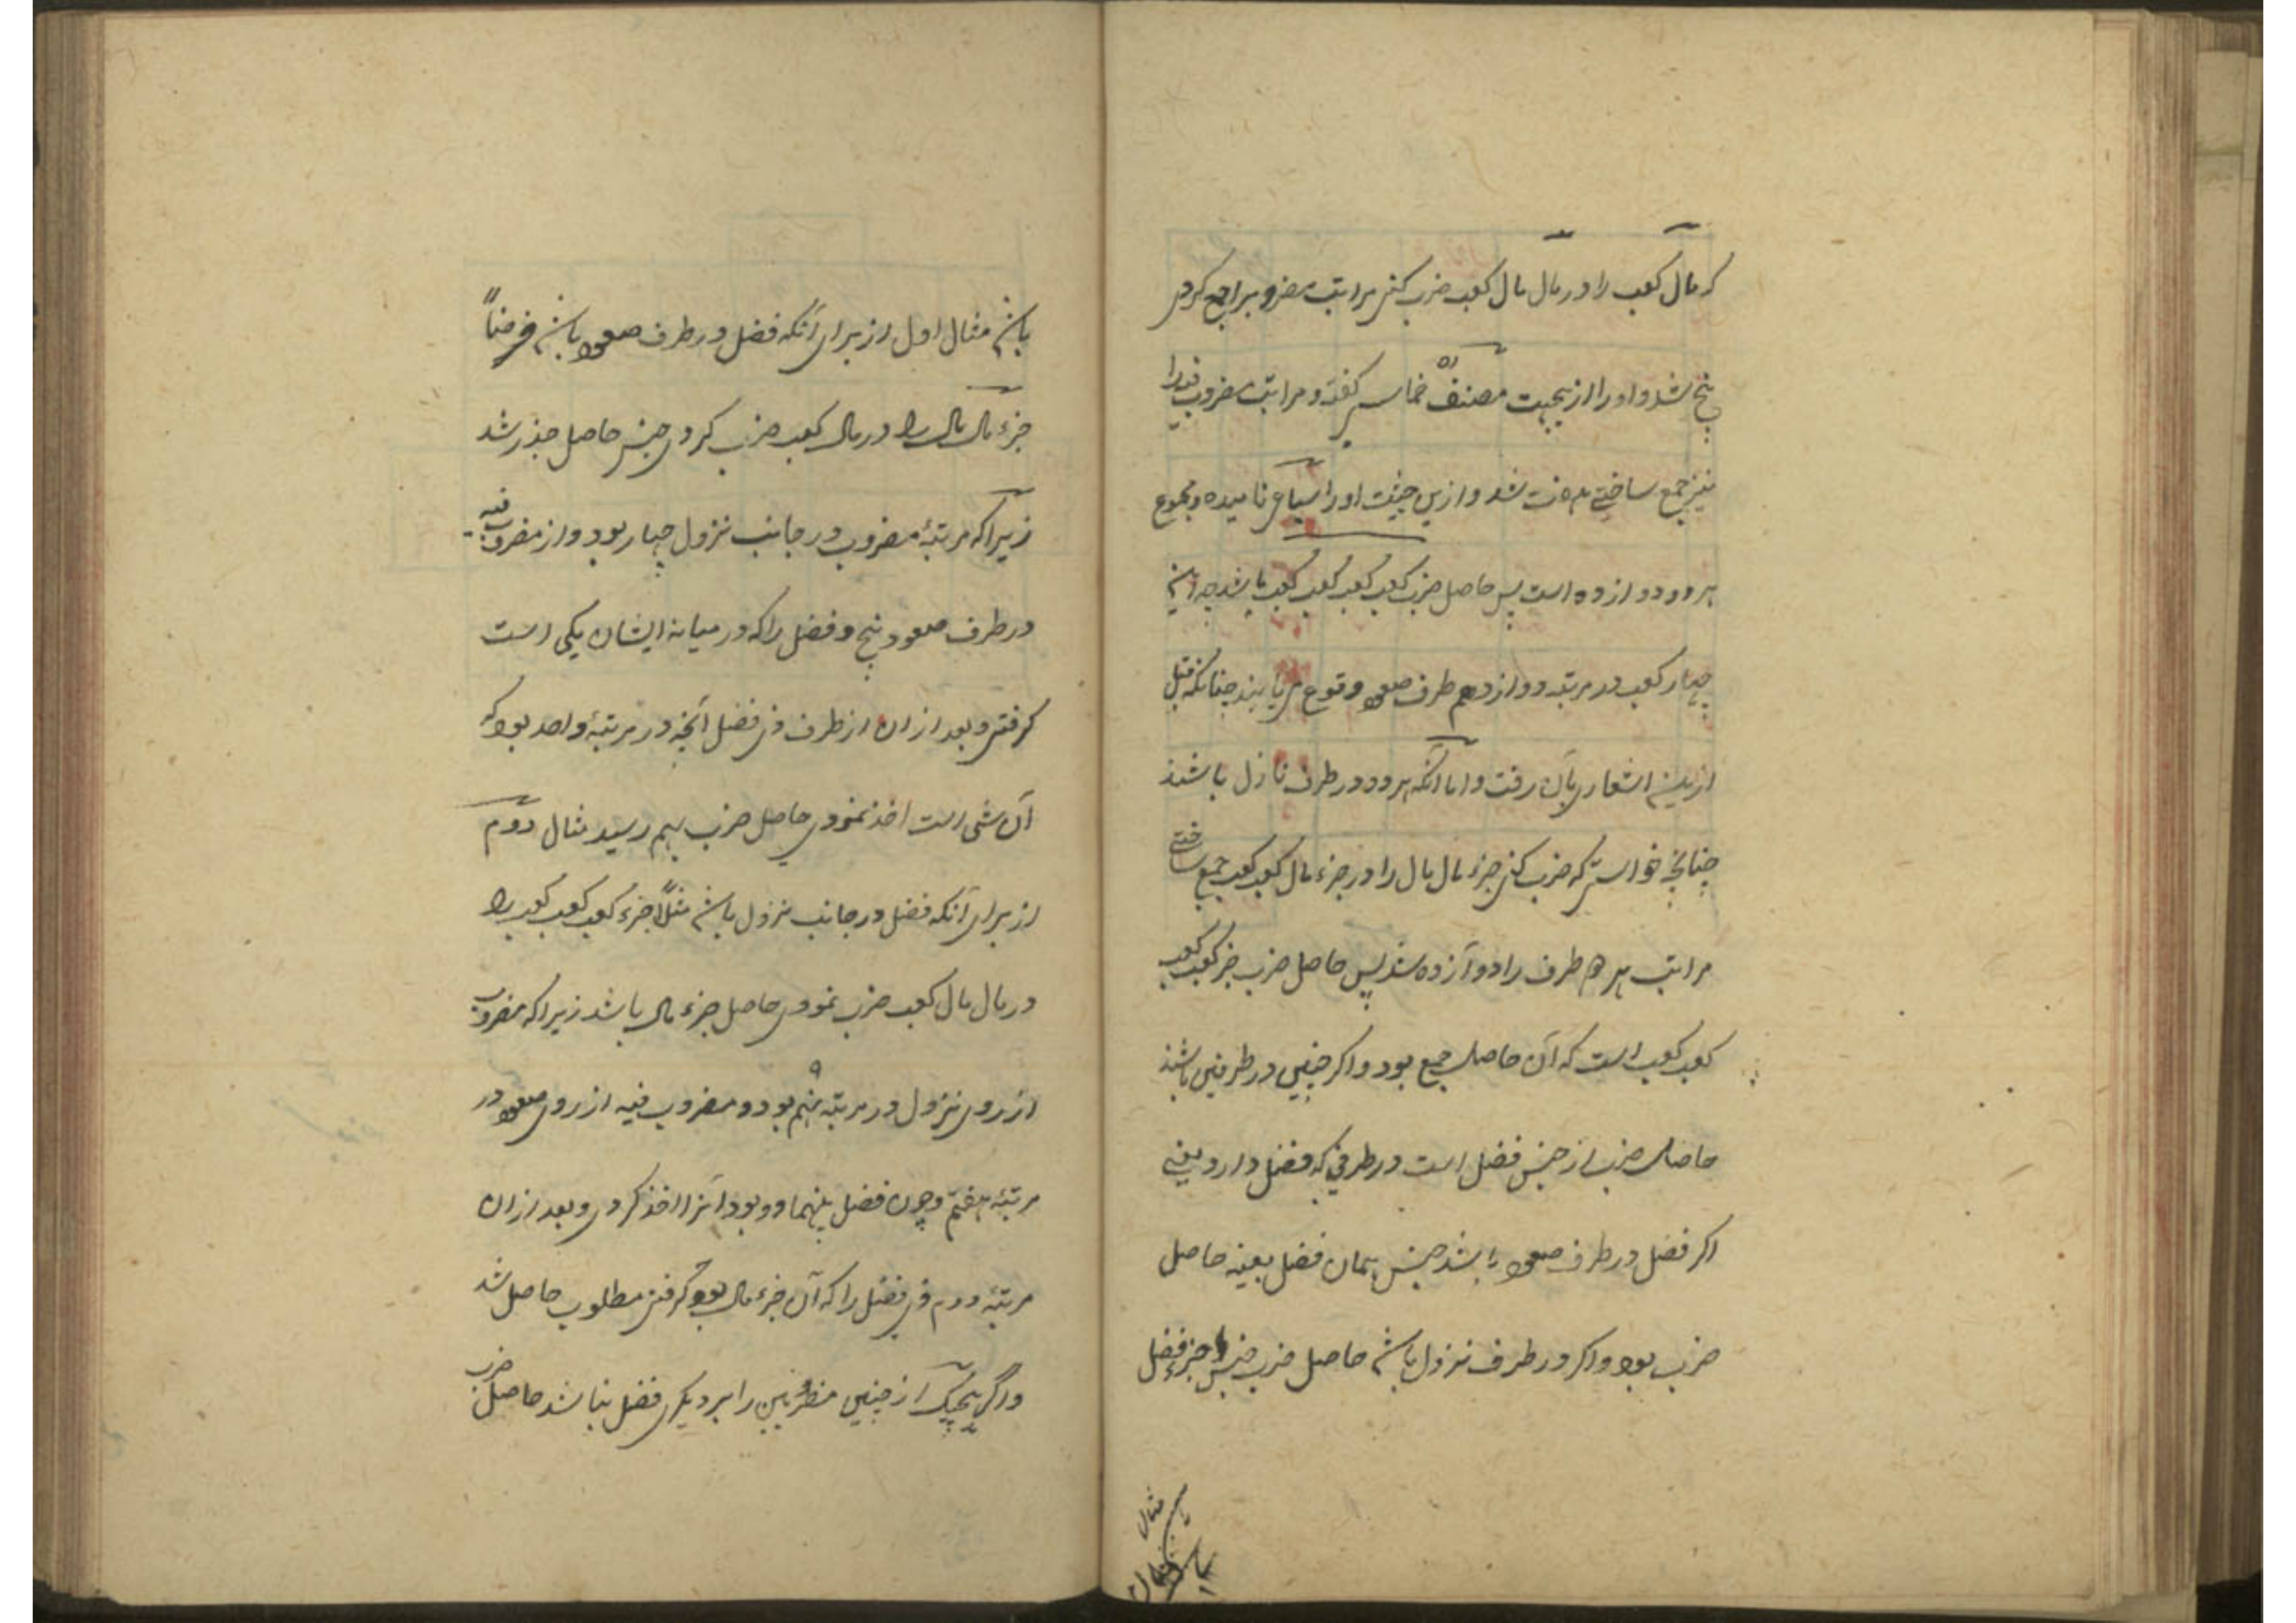 که مال کعب را در مال مال کعب ضرب کنی مراتب مضروب را جمع کردی
پنج شد و او را ازیجهت مصنف ره خماسی گفته و مراتب مضروب فیه را
نیز جمع ساختی هفت شد و ازین حیثیت او را سباعی نامیده و مجموع
هر دو دوازده است پس حاصل ضرب کعب کعب کعب کعب باشد چه این
چهار کعب در مرتبه دوازدهم طرف صعود وقوع می یابند چنانکه قبل
ازین اشعاری بآن رفت و اما آنکه هر دو در طرف نازل باشند
چنانچه خواستی که ضرب کنی جزء مال مال را در جزء مال کعب کعب جمع ساختی
مراتب هر دو طرف را دوازده شد پس حاصل ضرب جزء کعب کعب
کعب کعب است که آن حاصل جمع بود و اگر جنسین در طرفین باشند
حاصل ضرب از جنس فضل است در طرفی که فضل دارد یعنی
اگر فضل در طرف صعود باشد جنس همان فضل بعینه حاصل
ضرب بود و اگر در طرف نزول باشد حاصل ضرب جنس جزء فضل
باشد مثال
باشد مثال اول از برای آنکه فضل در طرف صعود باشد فرضاً
جزء مال مال را در مال کعب ضرب کردی جنس حاصل جذر شد
زیرا که مرتبهٔ مضروب در جانب نزول چهار بود و از مضروب فیه
در طرف صعود پنج و فضل را که در میانه ایشان یکی است
گرفتی و بعد از ان از طرف ذی فضل آنچه در مرتبهٔ واحد بود که
آن شی است اخذ نمودی حاصل ضرب بهم رسید مثال دوم
از برای آنکه فضل در جانب نزول باشد مثلاً جزء کعب کعب کعب را
در مال مال کعب ضرب نمودی حاصل جزء مال باشد زیرا که مضروب
از روی نزول در مرتبه نهم ۹ بود و مضروب فیه از روی صعود در
مرتبهٔ هفتم و چون فضل بینهما دو بود آنرا اخذ کردی و بعد از ان
مرتبهٔ دوم ذی فضل را که آن جزء مال بود گرفتی مطلوب حاصل شد
و اگر هیچیک از جنسین مضروبین را بر دیگری فضل نباشد حاصل ضرب